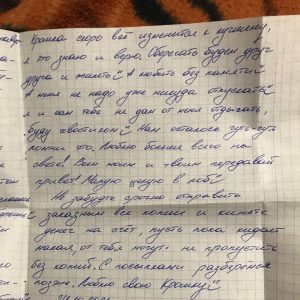 Крошка скоро всё изменится к лучшему,
я это знаю и верю. Сберегать будем друг
друга и жалеть А любить без памяти
А меня не надо уже никуда отпускать
я и сам тебе не дам от меня отдыхать,
буду хвостиком Нам осталось чуть-чуть
помни это. Люблю больше всего на
свете! Всем моим и твоим передавай
привет! Целую в лоб
Не забудьте срочно отправить
заказным все копии и киньте
денег на счёт, пусть пока
от тебя могут не пропустить
без копий. С посылками разберёмся
позже. Люблю свою Крошку